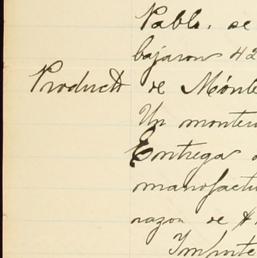 Pablo. se
bajaron 42
Producto de Monte
Un montero
Entrega
manufactu
razon de $
Importe